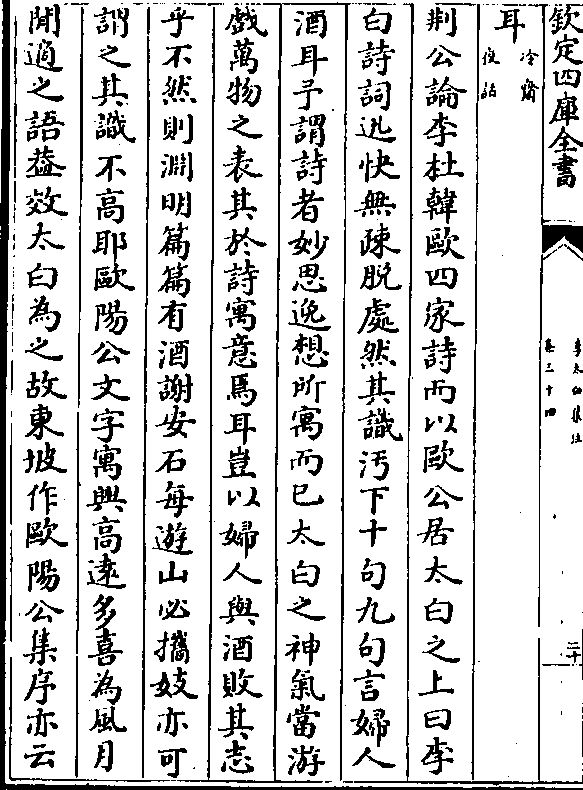 欽定四庫全書
李太白集注
卷三十四
二十
耳冷齋夜話
荆公論李杜韓歐四家詩而以歐公居太白之上曰李
白詩詞迅快無疎脱處然其識汚下十句九句言婦人
酒耳予謂詩者妙思逸想所寓而已太白之神氣當游
戲萬物之表其於詩寓意焉耳豈以婦人與酒敗其志
乎不然則淵明篇篇有酒謝安石每遊山必攜妓亦可
謂之其識不高耶歐陽公文字寓興高逺多喜為風月
閒適之語葢效太白為之故東坡作歐陽公集序亦云